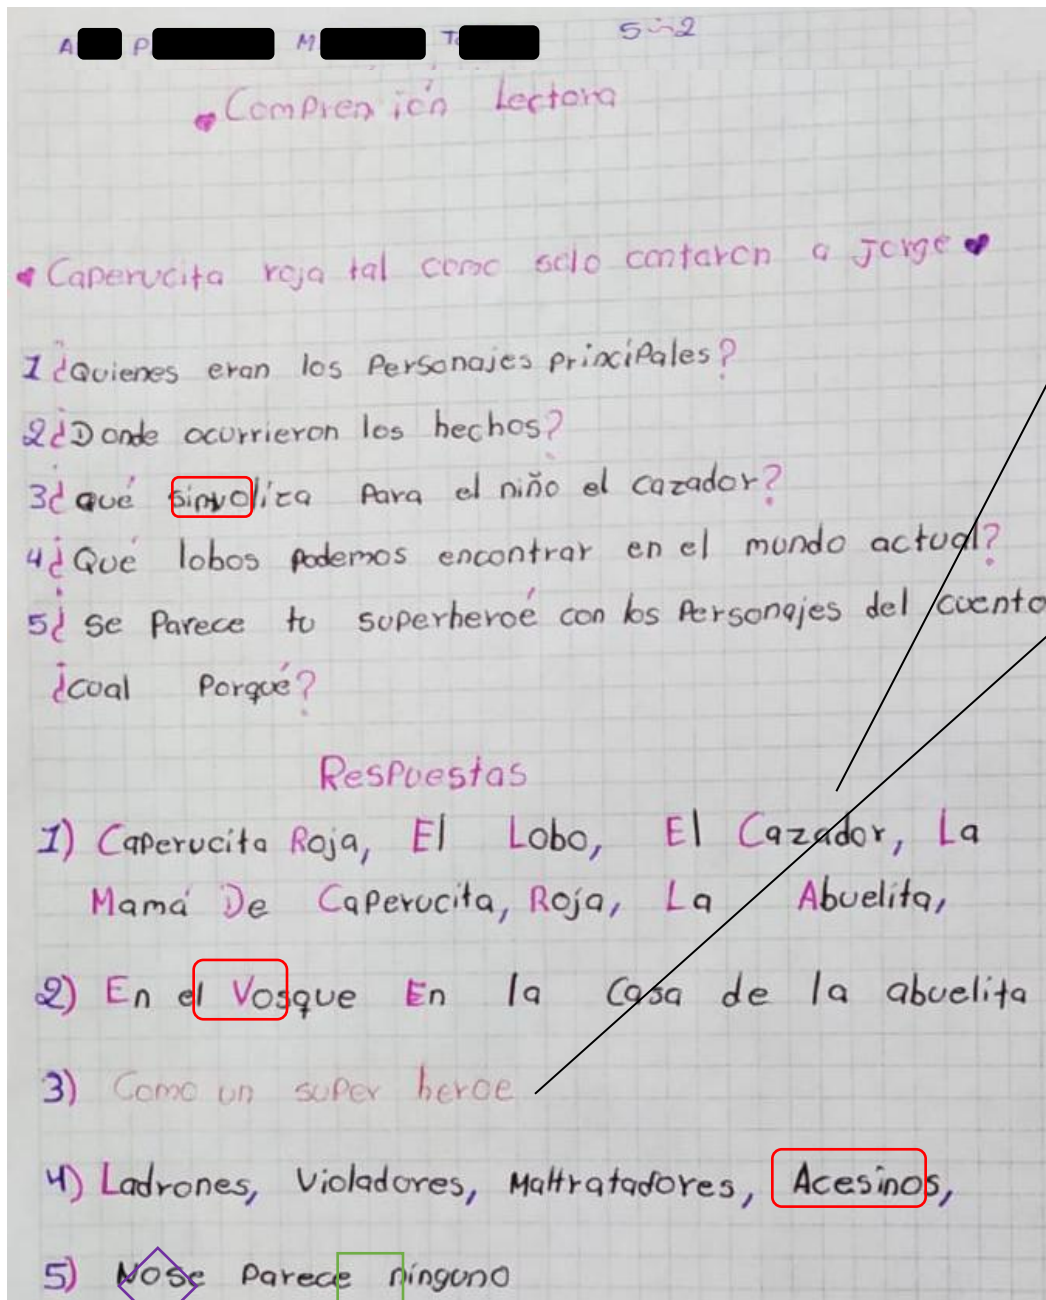 A P M T 5-2
Comprensión Lectora
Caperucita roja tal como selo contaron a Jorge
1 ¿Quienes eran los Personajes principales?
2 ¿Donde ocurrieron los hechos?
3 ¿qué sinvoliza Para el niño el cazador?
4 ¿Qué lobos podemos encontrar en el mundo actual?
5 ¿ Se Parece tu superheroé con los Personajes del cuento
¿coal Porqué?
Respuestas
1) Caperucita Roja, El Lobo, El Cazador, La
Mamá De Caperucita, Roja, La Abuelita,
2) En el Vosque En la Casa de la abuelita
3) Como un super heroe
4) Ladrones, Violadores, Maltratadores, Acesinos,
5) NoSe Parece ninguno